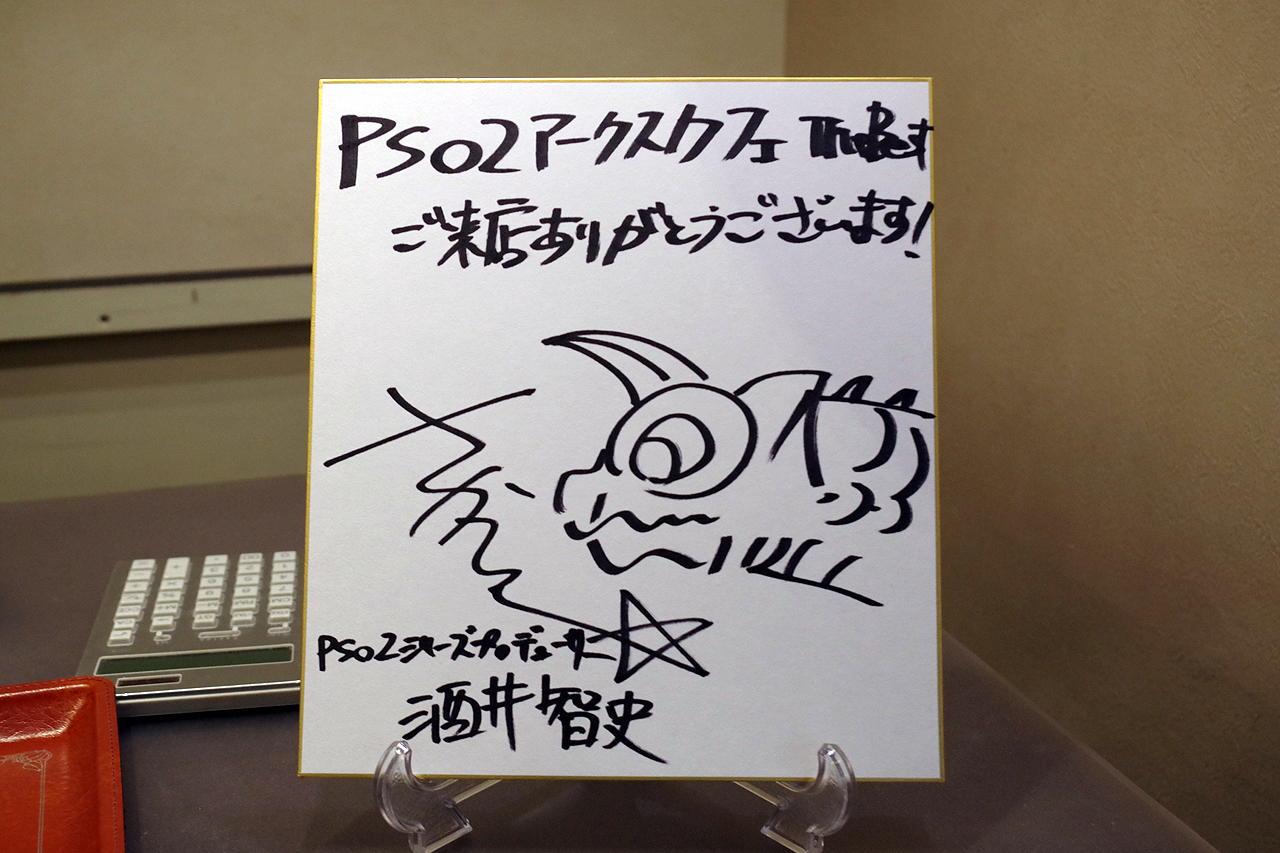 PSO2アークスカフェ The Best
ご来店ありがとうございます!
PSO2シリーズプロデューサー
酒井智史